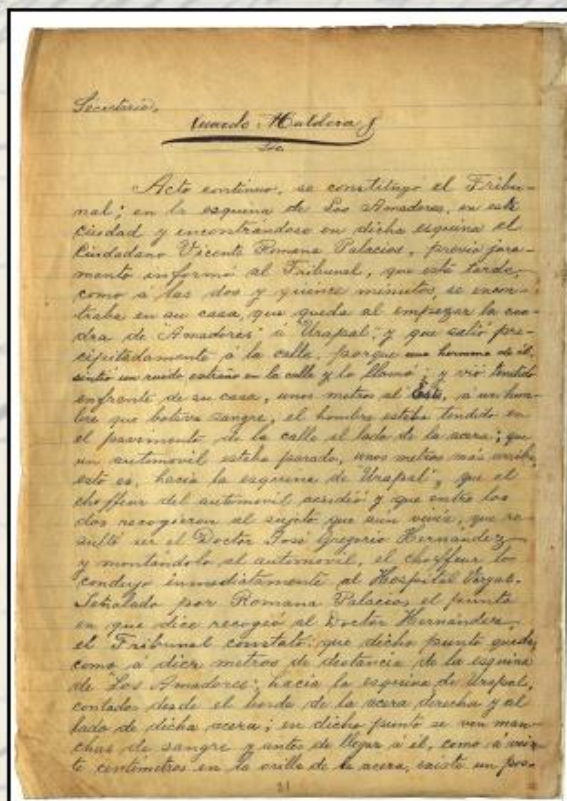 Secretario,
Lic.
Acto continuo, se constituyó el Tribu-
nal; en la esquina de Los Amadores, en esta
ciudad y encontrandose en dicha esquina el
Ciudadano Vicente Romana Palacios, previo jura-
mento informó al Tribunal, que esta tarde,
como á las dos y quince minutos, se encon-
traba en su casa, que queda al empezar la cua-
dra de "Amadores" á "Urapal", y que salió pre-
cipitadamente a la calle, porque una hermana de él,
sintió un ruido extraño en la calle y lo llamó; y vió tendido
enfrente de su casa, unos metros al Este, a un hom-
bre que botaba sangre, el hombre estaba tendido en
el pavimento de la calle al lado de la acera; que
un automovil estaba parado, unos metros más arriba,
esto es, hacia la esquina de "Urapal", que el
chauffeur del automovil acudió y que entre los
dos recogieron al sujeto que aún vivía, que re-
sultó ser el Doctor José Gregorio Hernández
y montándolo al automovil, el chauffeur lo
condujo inmediatamente al Hospital Vargas.
Señalado por Romana Palacios, el punto
en que dice recogió al Doctor Hernández,
el Tribunal constató: que dicho punto queda,
como á diez metros de distancia de la esquina
de "Los Amadores", hacia la esquina de Urapal,
contados desde el borde de la acera derecha y al
lado de dicha acera; en dicho punto se ven man-
chas de sangre y antes de llegar a él, como á vein-
te centímetros en la orilla de la acera, existe un pos-